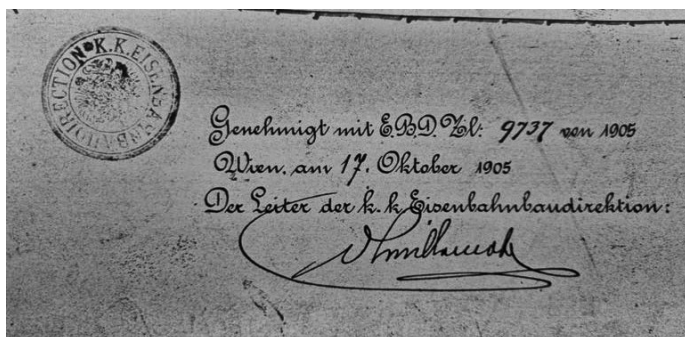 K.K. EISENBAHNBAUDIRECTION
Genehmigt mit E.B.D. Zl: 9737 von 1905
Wien, am 17. Oktober 1905
Der Leiter der k. k. Eisenbahnbaudirektion: